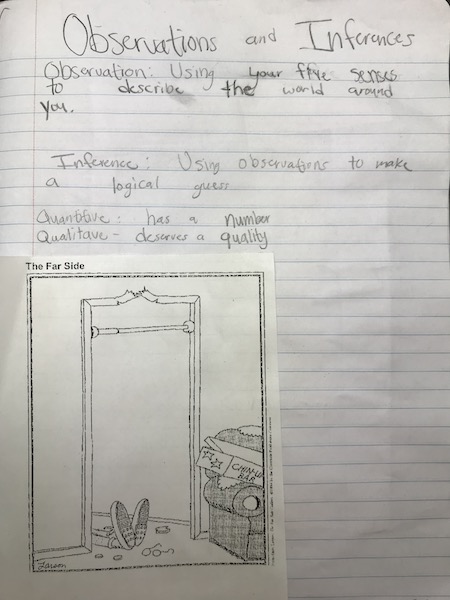 Observations and Inferences
Observation: Using your five senses
to describe the world around
you.
Inference: Using observations to make
a logical guess
Quantitave: has a number
Qualitave - deserves a quality
The Far Side
CHIN-UP
BAR
Larson